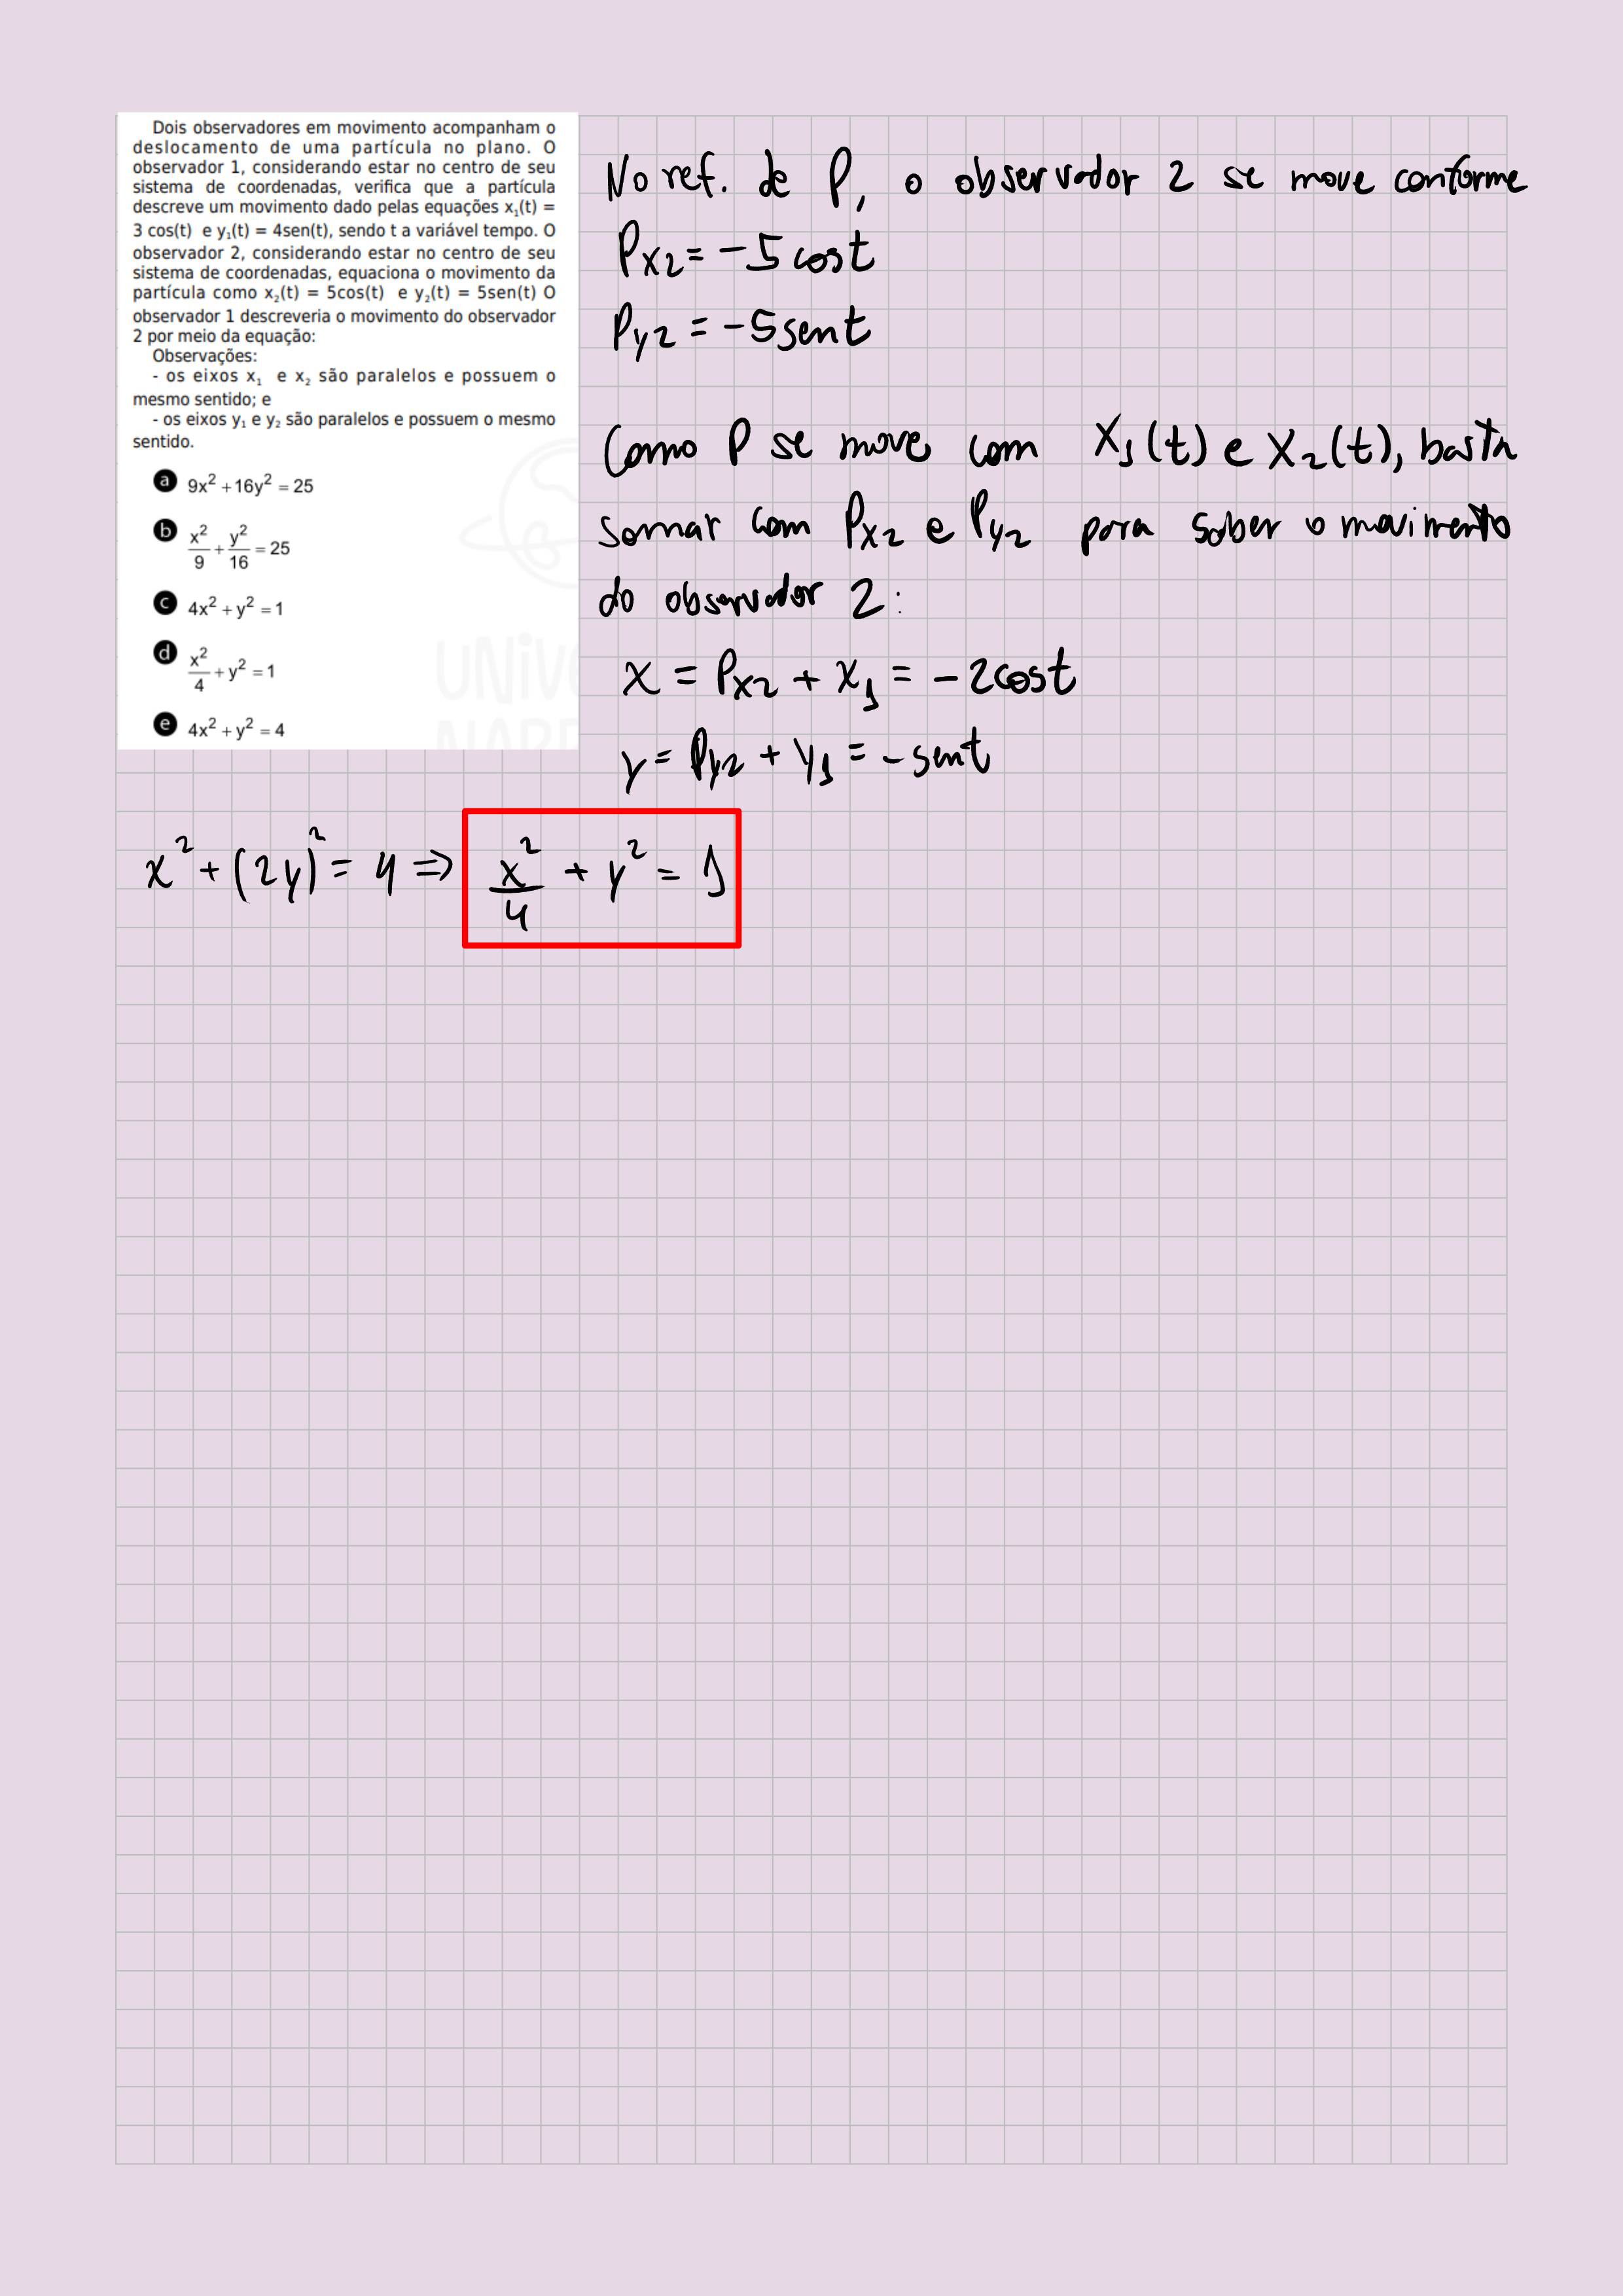 Dois observadores em movimento acompanham o
deslocamento de uma partícula no plano. O
observador 1, considerando estar no centro de seu
sistema de coordenadas, verifica que a partícula
descreve um movimento dado pelas equações x₁(t) =
3 cos(t) e y₁(t) = 4sen(t), sendo t a variável tempo. O
observador 2, considerando estar no centro de seu
sistema de coordenadas, equaciona o movimento da
partícula como x₂(t) = 5cos(t) e y₂(t) = 5sen(t) O
observador 1 descreveria o movimento do observador
2 por meio da equação:
Observações:
- os eixos x₁ e x₂ são paralelos e possuem o
mesmo sentido; e
- os eixos y₁ e y₂ são paralelos e possuem o mesmo
sentido.
a 9x² + 16y² = 25
b x²/9 + y²/16 = 25
c 4x² + y² = 1
d x²/4 + y² = 1
e 4x² + y² = 4
UNIV
No ref. de P, o observador 2 se move conforme
Px2 = -5 cost
Py2 = -5 sent
Como P se move com x₁(t) e x₂(t), basta
somar com Px2 e Py2 para saber o movimento
do observador 2:
x = Px2 + x₁ = -2cost
y = Py2 + y₁ = -sent
x² + (2y)² = 4 ⇒ x²/4 + y² = 1